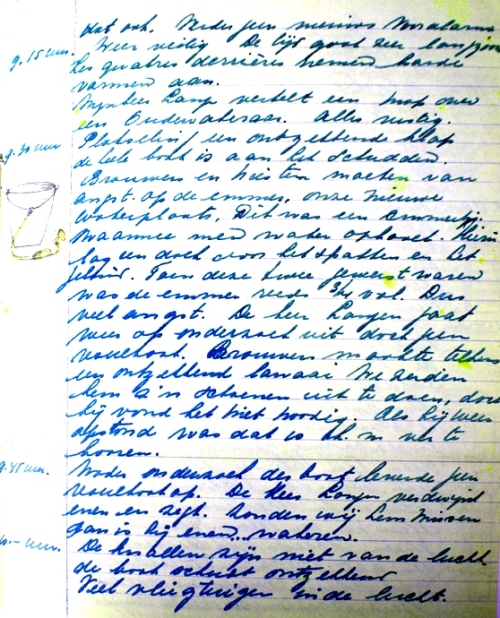 dat ook. Verder geen nieuws
9.15 uur. Weer rustig. De tijd gaat zeer langzaam
Les quatres derrières nemen harde
vormen aan.
Mynheer Lange vertelt een mop over
een Oudewateraar. Alles rustig.
9.30 uur Plotseling een ontzettende klap
de hele boot is aan het schudden.
Brouwers en moeten van
angst op de emmer, onze nieuwe
waterplaats, Dit was een emmertje
waarmee men water ophaalt. Hierin
lag een doek voor het spatten en het
geluid. Toen deze twee geweest waren
was de emmer reeds 3/4 vol. Dus
veel angst. De heer Langen gaat
weer op onderzoek uit doch geen
resultaat. Brouwers maakte telkens
een ontzettend lawaai We zeiden
hem z'n schoenen uit te doen, doch
hij vond het niet nodig. Als hij weer
opstond was dat 10 k.m. ver te
horen.
9.45 uur. Nader onderzoek der boot leverde geen
resultaat op. De Heer Langen verdwijnt
even en zegt. zouden wij hem missen
dan is hij even.. wateren.
10.- uur. De knallen zijn niet van de lucht
de boot schudt ontzettend
Veel vliegtuigen in de lucht.